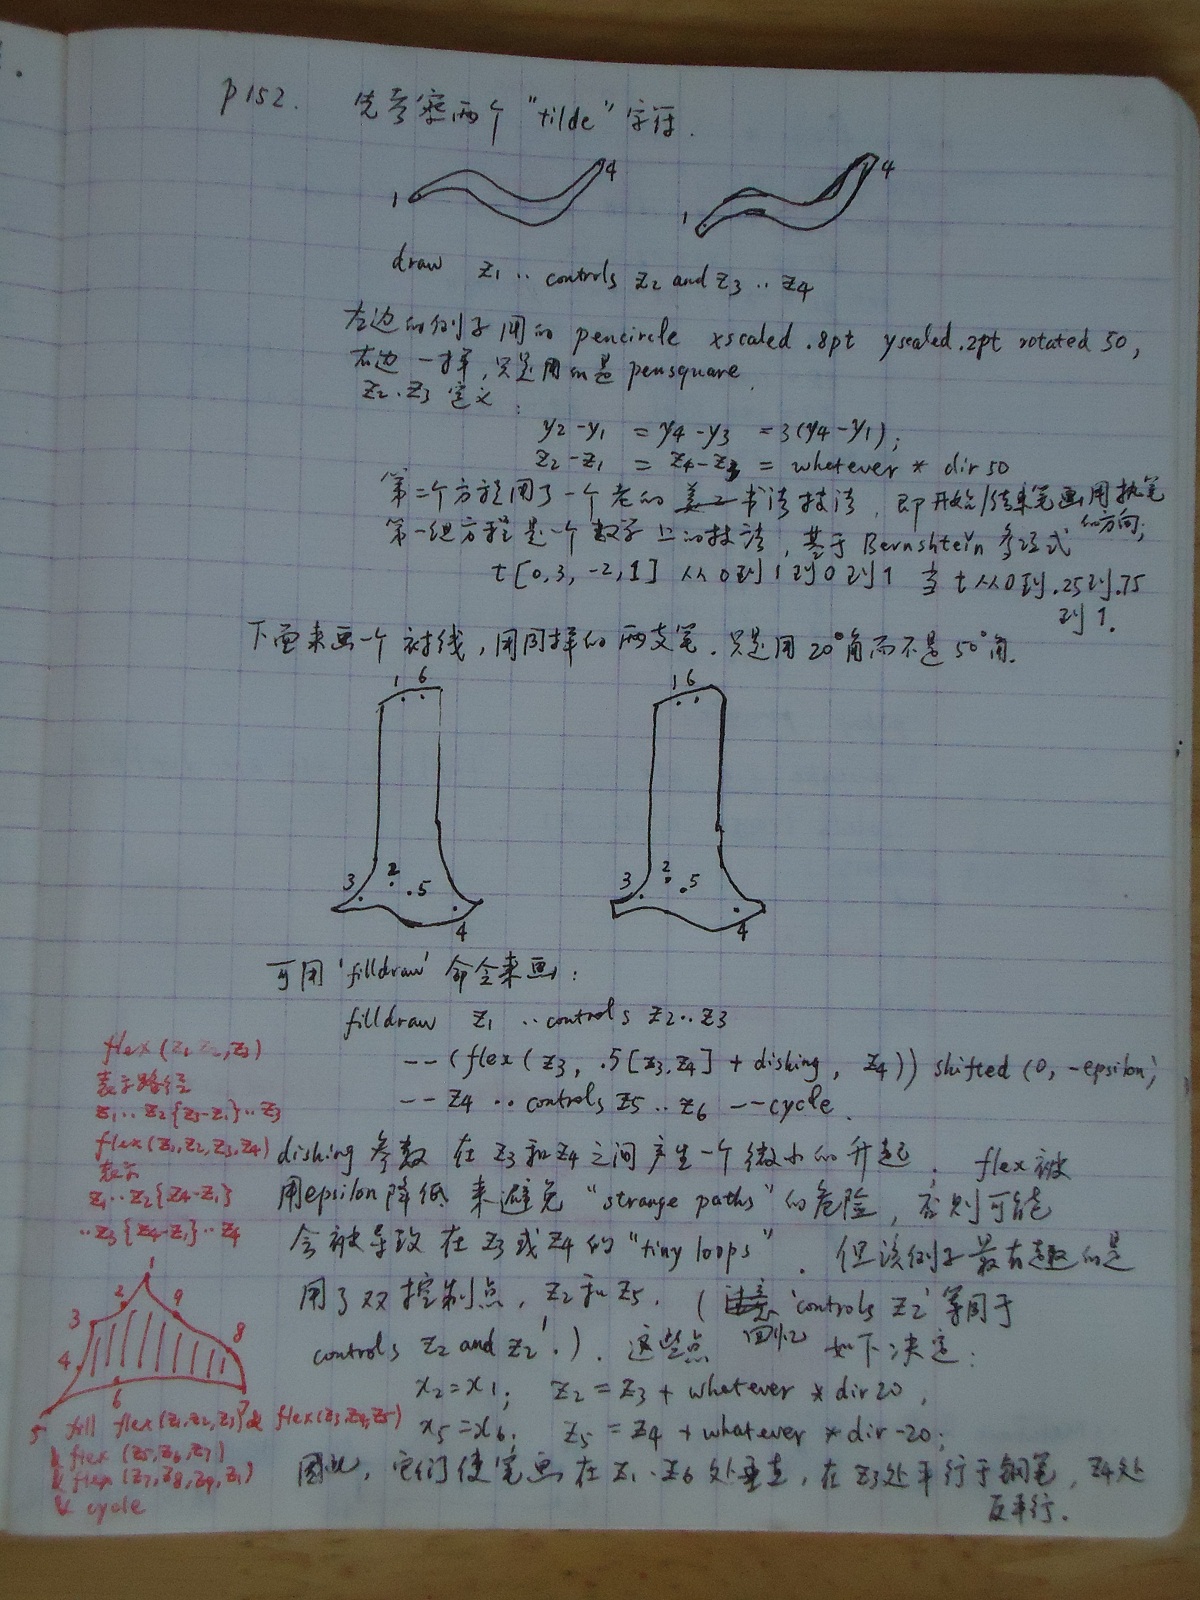 p152. 先考察两个 "tilde" 字符.
1 4 1 4
draw z1 .. controls z2 and z3 .. z4
左边的例子用的 pencircle xscaled .8pt yscaled .2pt rotated 50,
右边一样, 只是用的是 pensquare.
z2、z3 定义:
y2-y1 = y4-y3 = 3(y4-y1);
z2-z1 = z4-z3 = whatever * dir 50
第二个方程用了一个老的书法技法, 即开始/结束笔画用执笔的方向;
第一组方程是一个数学上的技法, 基于 Bernshtein 多项式
t[0,3,-2,1] 从0到1到0到1 当 t 从0到.25到.75
到1.
下面来画一个衬线, 用同样的两支笔. 只是用20°角而不是50°角.
1 6 1 6
3 2 5 4 3 2 5 4
可用 'filldraw' 命令来画:
filldraw z1 .. controls z2 .. z3
-- (flex(z3, .5[z3,z4] + dishing, z4)) shifted (0, -epsilon)
-- z4 .. controls z5 .. z6 -- cycle.
dishing 参数在 z3 和 z4 之间产生一个微小的升起. flex 被
用 epsilon 降低来避免 "strange paths" 的危险, 否则可能
会被导致在 z3 或 z4 的 "tiny loops". 但该例子最有趣的是
用了双控制点, z2 和 z5. (回忆 'controls z2' 等同于
controls z2 and z2'.). 这些点如下决定:
x2=x1; z2 = z3 + whatever * dir 20,
x5=x6; z5 = z4 + whatever * dir -20;
因此, 它们使笔画在 z1、z6 处垂直, 在 z3 处平行于钢笔, z4 处
反平行.
flex(z1,z2,z3)
表示路径
z1..z2{z3-z1}..z3
flex(z1,z2,z3,z4)
表示
z1..z2{z4-z1}
..z3{z4-z1}..z4
1 2 3 4 5 6 7 8 9
fill flex(z1,z2,z3) & flex(z3,z4,z5)
& flex (z5,z6,z7)
& flex (z7,z8,z9,z1)
& cycle